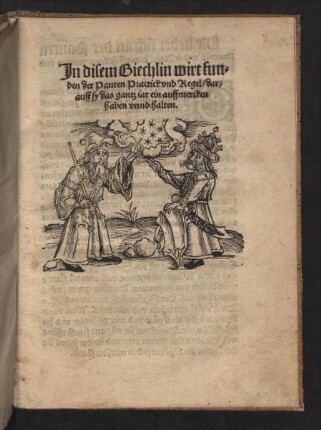 In disem Biechlin wirt fun-
den der Pauren Practick vnd Regel / dar-
auff sy das gantz jar ein auffmercken
haben vnnd halten.